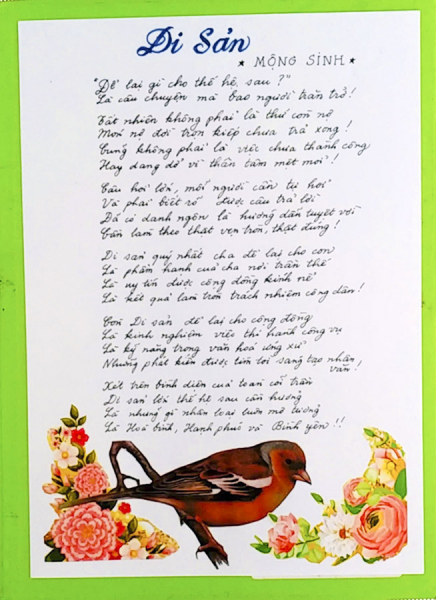 Di Sản
★ MỘNG SINH ★
"Để lại gì cho thế hệ sau ?"
Là câu chuyện mà bao người trăn trở !
Tất nhiên không phải là thứ còn nợ
Món nợ đời trọn kiếp chưa trả xong !
Cũng không phải là việc chưa thành công
Hay dang dở vì thân tâm mệt mỏi !
Câu hỏi lớn, mỗi người cần tự hỏi
Và phải biết rõ được câu trả lời
Đã có danh ngôn là hướng dẫn tuyệt vời
Cần làm theo thật vẹn tròn, thật đúng !
Di sản quý nhất cha để lại cho con
Là phẩm hạnh của cha nơi trần thế
Là uy tín được cộng đồng kính nể
Là kết quả làm tròn trách nhiệm công dân !
Còn Di sản để lại cho cộng đồng
Là kinh nghiệm việc thi hành công vụ
Là kỹ năng trong văn hoá ứng xử
Những phát kiến được tìm tòi sáng tạo nhân
văn !
Xét trên bình diện của toàn cõi trần
Di sản tới thế hệ sau cần hướng
Là những gì nhân loại luôn mơ tưởng
Là Hoà bình, Hạnh phúc và Bình yên !!